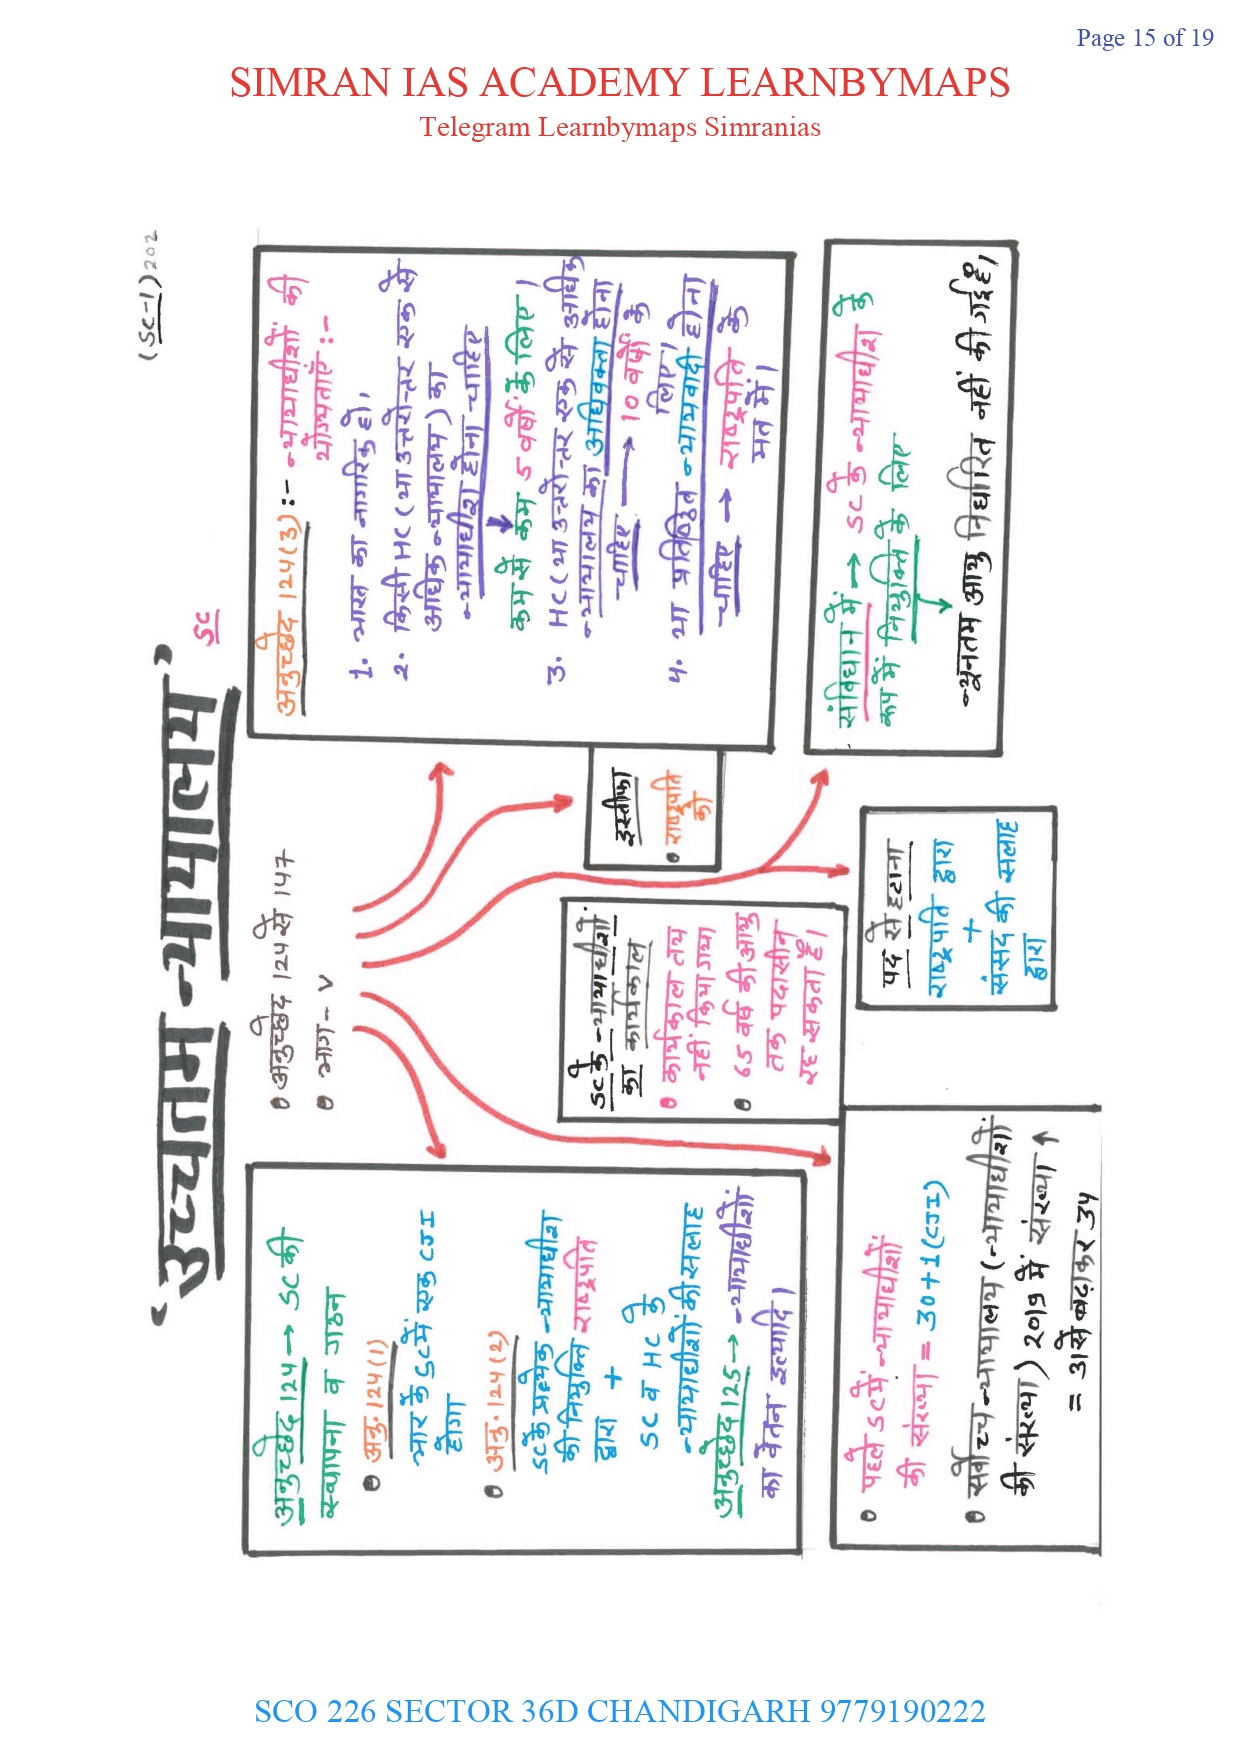 Page 15 of 19
SIMRAN IAS ACADEMY LEARNBYMAPS
Telegram Learnbymaps Simranias
(SC-1)202
"उच्चतम न्यायालय"
SC
• अनुच्छेद 124 से 147
• भाग - V
अनुच्छेद 124 → SC की
स्थापना व गठन
• अनु. 124(1)
भार के SC में एक CJI
होगा
• अनु. 124(2)
SC के प्रत्येक न्यायाधीश
की नियुक्ति राष्ट्रपति
द्वारा +
SC व HC के
न्यायाधीशों की सलाह
अनुच्छेद 125 → न्यायाधीशों
का वेतन इत्यादि।
अनुच्छेद 124(3) :- न्यायाधीशों की
योग्यताएँ :-
1. भारत का नागरिक हो।
2. किसी HC (या उत्तरोत्तर एक से
अधिक न्यायालय) का
न्यायाधीश होना चाहिए
कम से कम 5 वर्षों के लिए।
3. HC (या उत्तरोत्तर एक से अधिक
न्यायालय का अधिवक्ता होना
चाहिए → 10 वर्षों के
लिए।
4. या प्रतिष्ठित न्यायवादी होना
चाहिए → राष्ट्रपति के
मत में।
इस्तीफा
• राष्ट्रपति
को
SC के न्यायाधीशों
का कार्यकाल
• कार्यकाल तय
नहीं किया गया
• 65 वर्ष की आयु
तक पदासीन
रह सकता है।
• पहले SC में न्यायाधीशों
की संख्या = 30+1 (CJI)
• सर्वोच्च न्यायालय (न्यायाधीशों
की संख्या) 2019 में संख्या ↑
= 31 से बढ़ाकर 34
पद से हटाना
राष्ट्रपति द्वारा
+
संसद की सलाह
द्वारा
संविधान में → SC के न्यायाधीश के
रूप में नियुक्ति के लिए
न्यूनतम आयु निर्धारित नहीं की गई है।
SCO 226 SECTOR 36D CHANDIGARH 9779190222